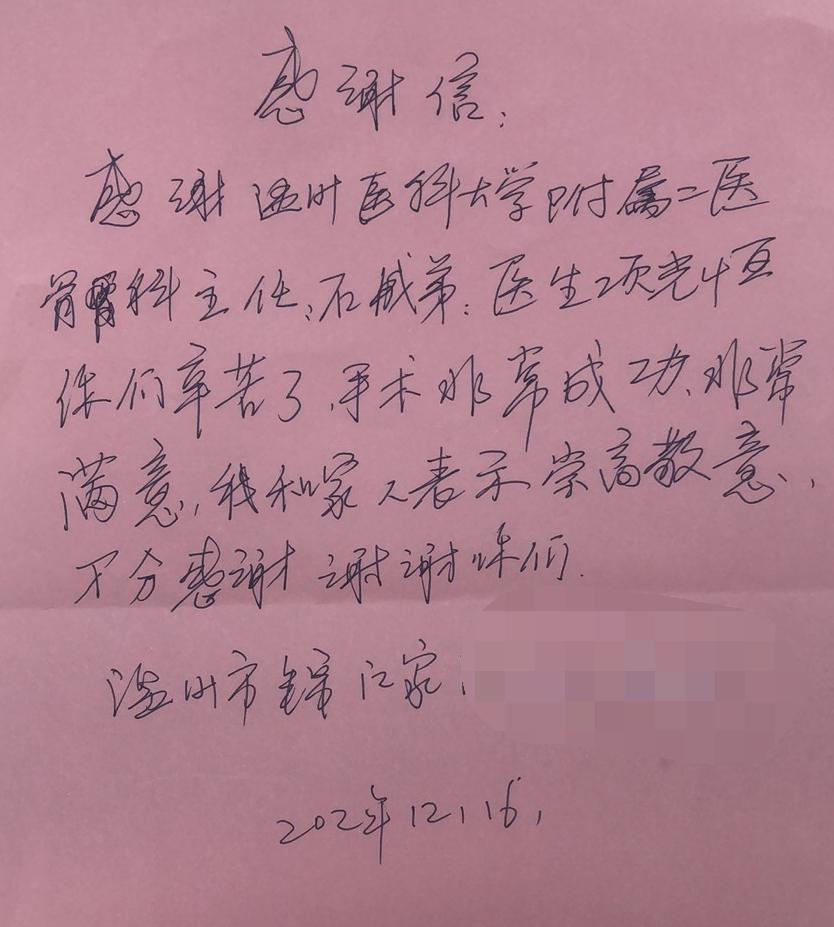 感谢信:
感谢温州医科大学附属二医
骨科主任:石成弟:医生项光恒
你们辛苦了、手术非常成功、非常
满意,我和家人表示崇高敬意,
万分感谢 谢谢你们.
温州市锦江家,
202年12,16,